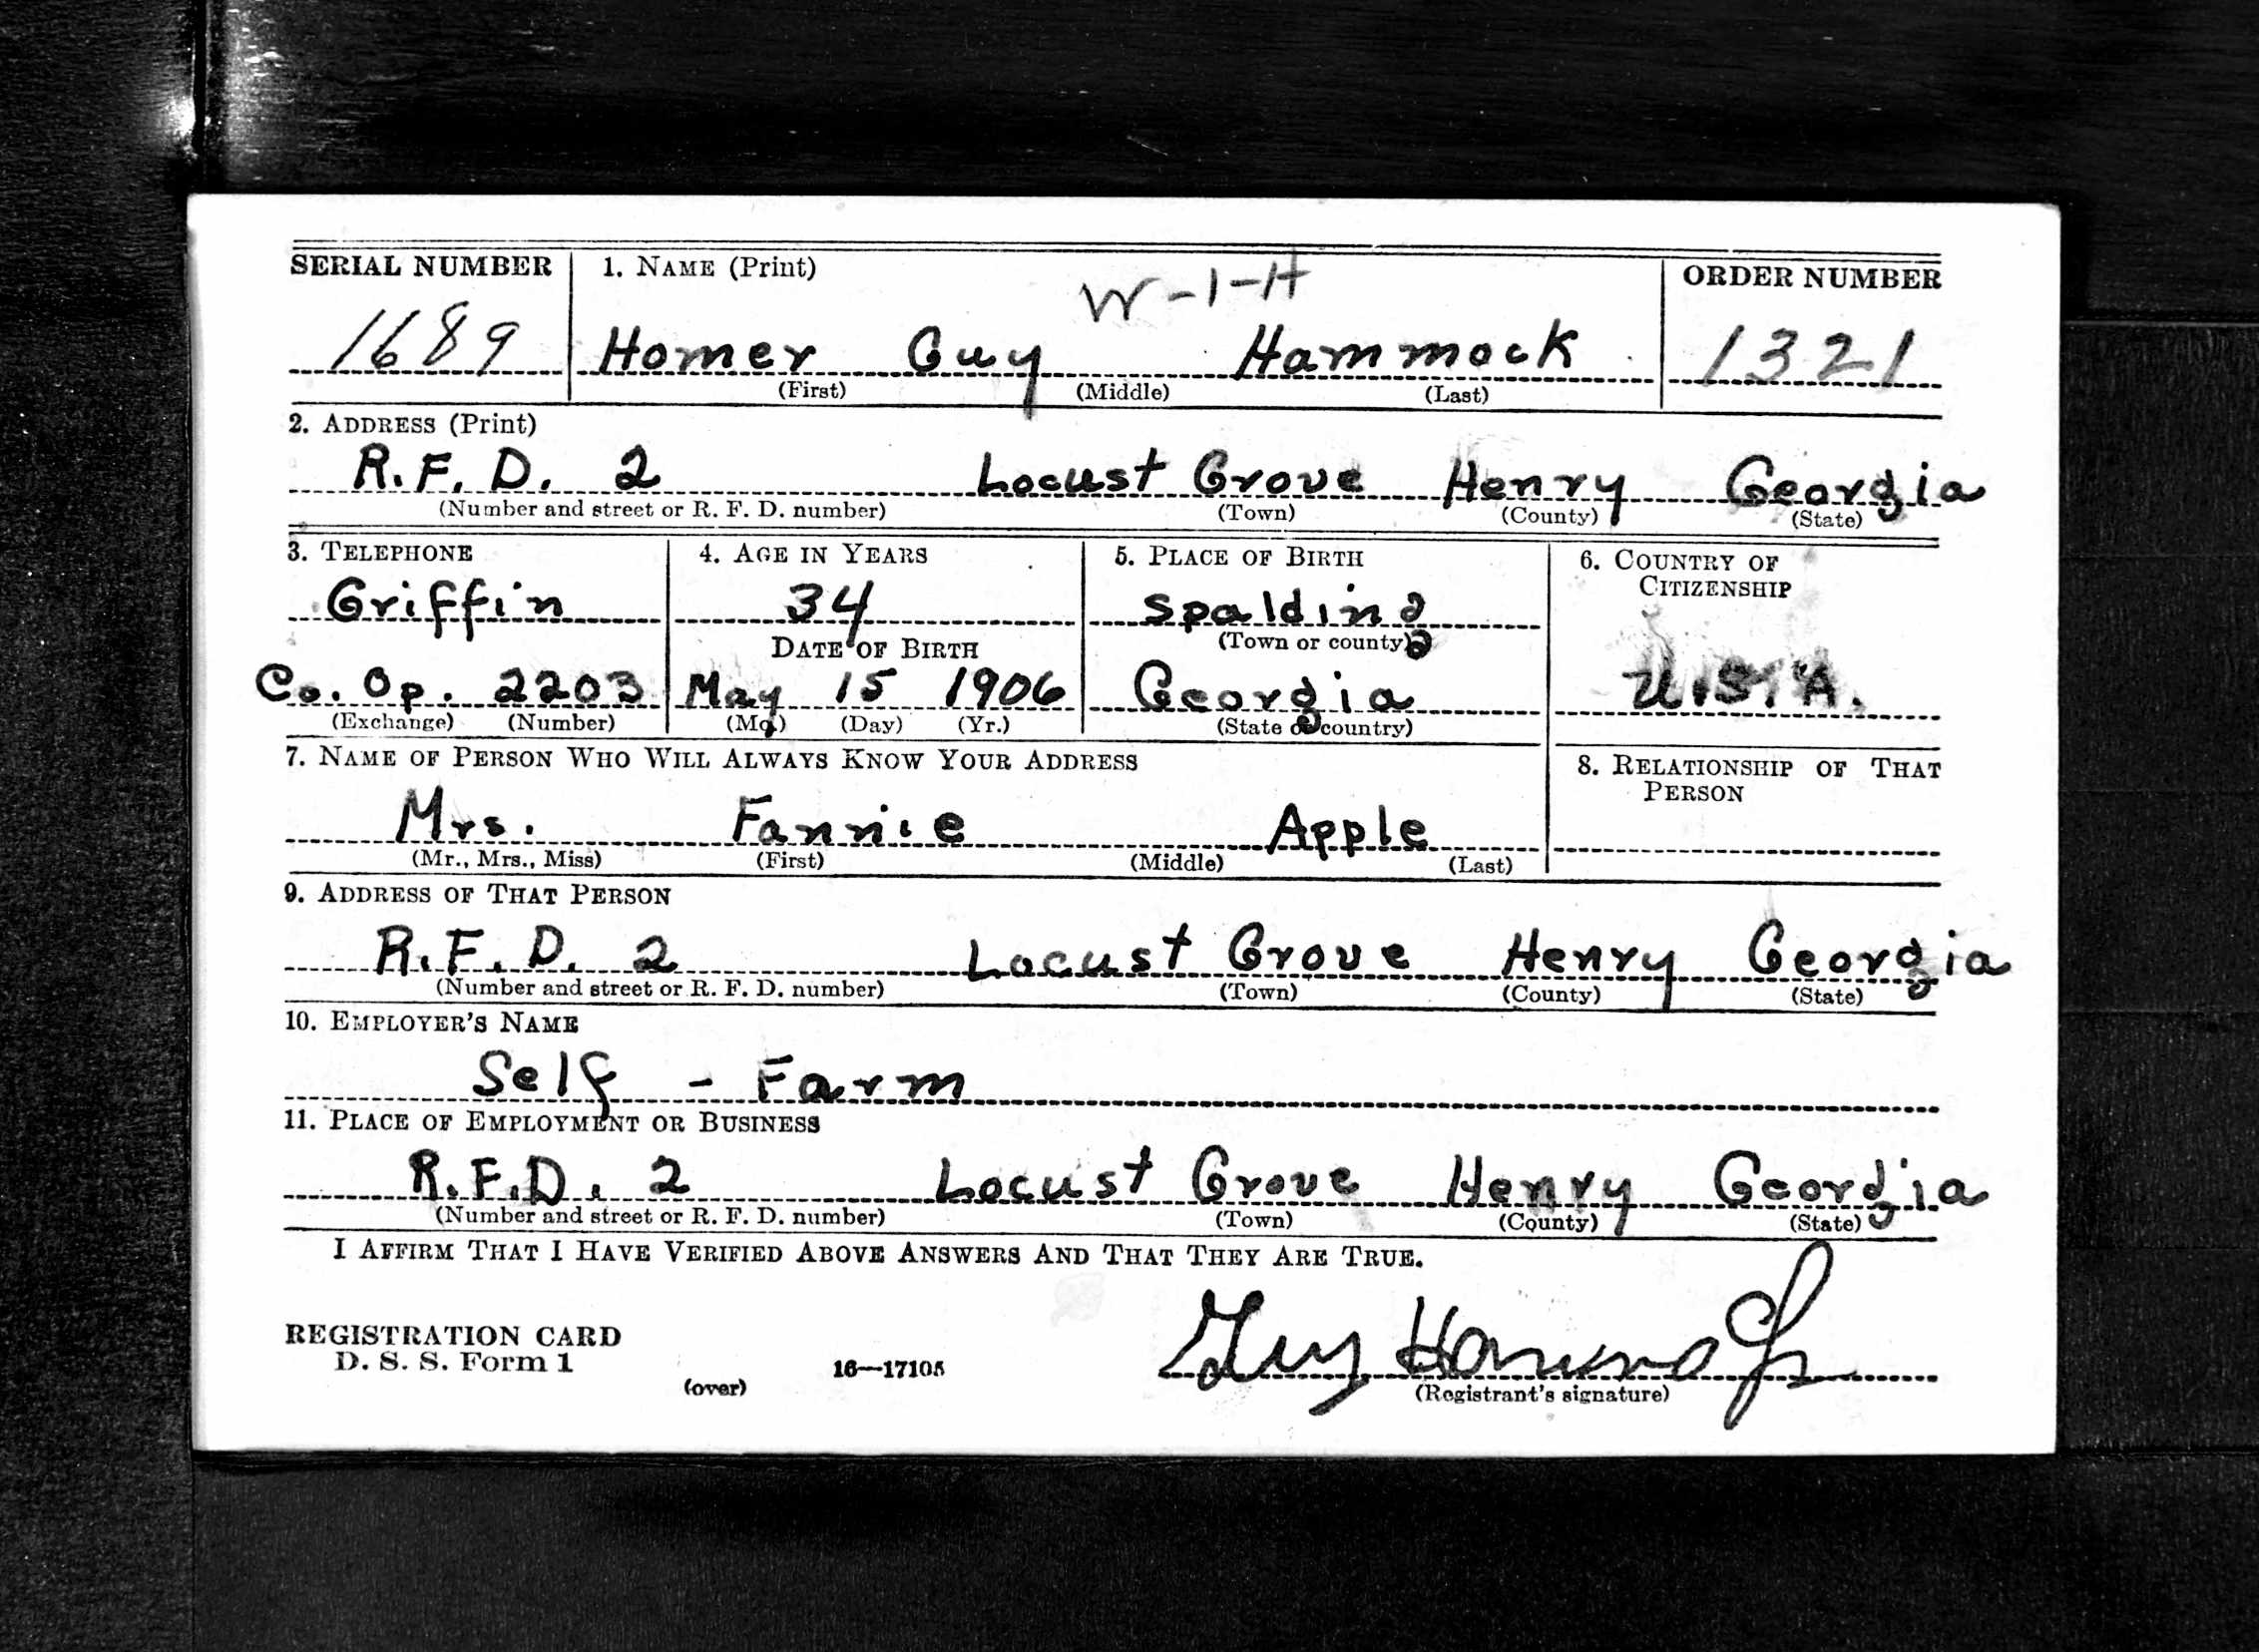 SERIAL NUMBER 1. NAME (Print) ORDER NUMBER
W-1-H
1689 Homer Guy Hammock 1321
(First) (Middle) (Last)
2. ADDRESS (Print)
R.F.D. 2 Locust Grove Henry Georgia
(Number and street or R. F. D. number) (Town) (County) (State)
3. TELEPHONE 4. AGE IN YEARS 5. PLACE OF BIRTH 6. COUNTRY OF
CITIZENSHIP
Griffin 34 Spalding
DATE OF BIRTH (Town or county)
Co. Op. 2203 May 15 1906 Georgia U.S.A.
(Exchange) (Number) (Mo.) (Day) (Yr.) (State or country)
7. NAME OF PERSON WHO WILL ALWAYS KNOW YOUR ADDRESS 8. RELATIONSHIP OF THAT
PERSON
Mrs. Fannie Apple
(Mr., Mrs., Miss) (First) (Middle) (Last)
9. ADDRESS OF THAT PERSON
R.F.D. 2 Locust Grove Henry Georgia
(Number and street or R. F. D. number) (Town) (County) (State)
10. EMPLOYER'S NAME
Self - Farm
11. PLACE OF EMPLOYMENT OR BUSINESS
R.F.D. 2 Locust Grove Henry Georgia
(Number and street or R. F. D. number) (Town) (County) (State)
I AFFIRM THAT I HAVE VERIFIED ABOVE ANSWERS AND THAT THEY ARE TRUE.
REGISTRATION CARD
D. S. S. Form 1 16—17105 Guy
(over) (Registrant's signature)